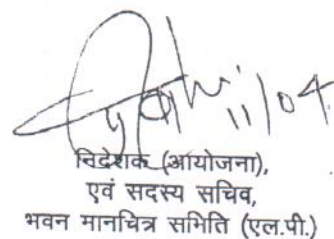 11/04
निदेशक (आयोजना),
एवं सदस्य सचिव,
भवन मानचित्र समिति (एल.पी.)